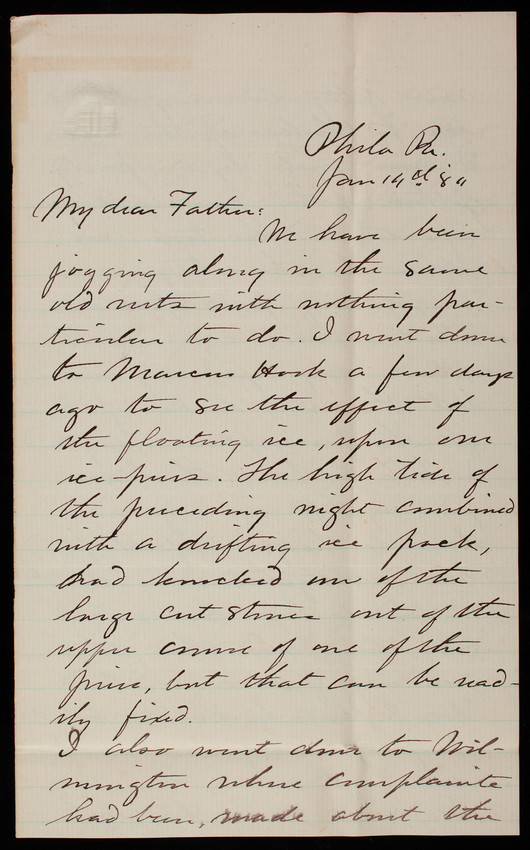 Phila Pa.
Jan 14th
My dear Father:
We have been
jogging along in the same
old ruts with nothing par-
ticular to do. I went down
to Marcus Hook a few days
ago to see the effect of
the floating ice, upon our
ice-piers. The high tide of
the preceding night combined
with a drifting ice pack,
had knocked one of the
large cut stones out of the
upper course of one of the
piers, but that can be read-
ily fixed.
I also went down to Wil-
mington where complaints
had been, made about the